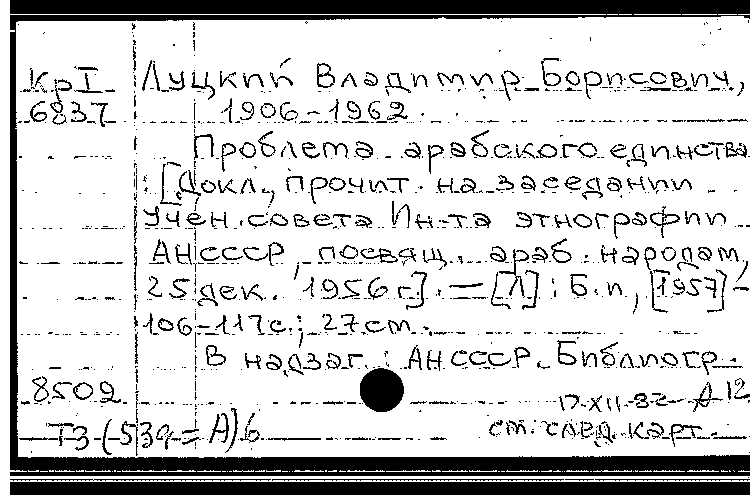 КрI Луцкий Владимир Борисович,
6837 1906-1962.
Проблема арабского единства
[Докл., прочит. на заседании
Учен. совета Ин-та этнографии
АН СССР, посвящ. араб. народам,
25 дек. 1956 г.]. = [Л]: Б.и, [1957]-
106-117с.; 27 см.
В надзаг.: АН СССР. Библиогр.
8502
17-XII-82- А 12
Т3(-53я=А)6 см. след. карт.